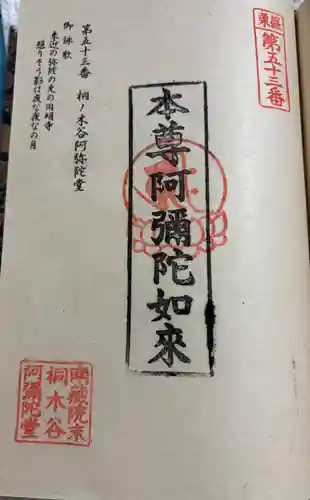 長栗
第五十三番
本尊阿彌陀如來
第五十三番 桐ノ木谷阿弥陀堂
御詠歌
来迎の弥陀の光の圓明寺
照りそう影は夜な夜なの月
興蔵院末
桐木谷
阿彌陀堂